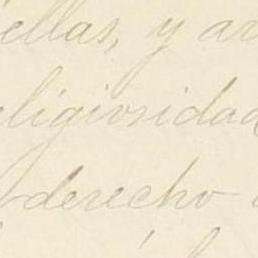 ellas, y ar
eligiosidad
derecho